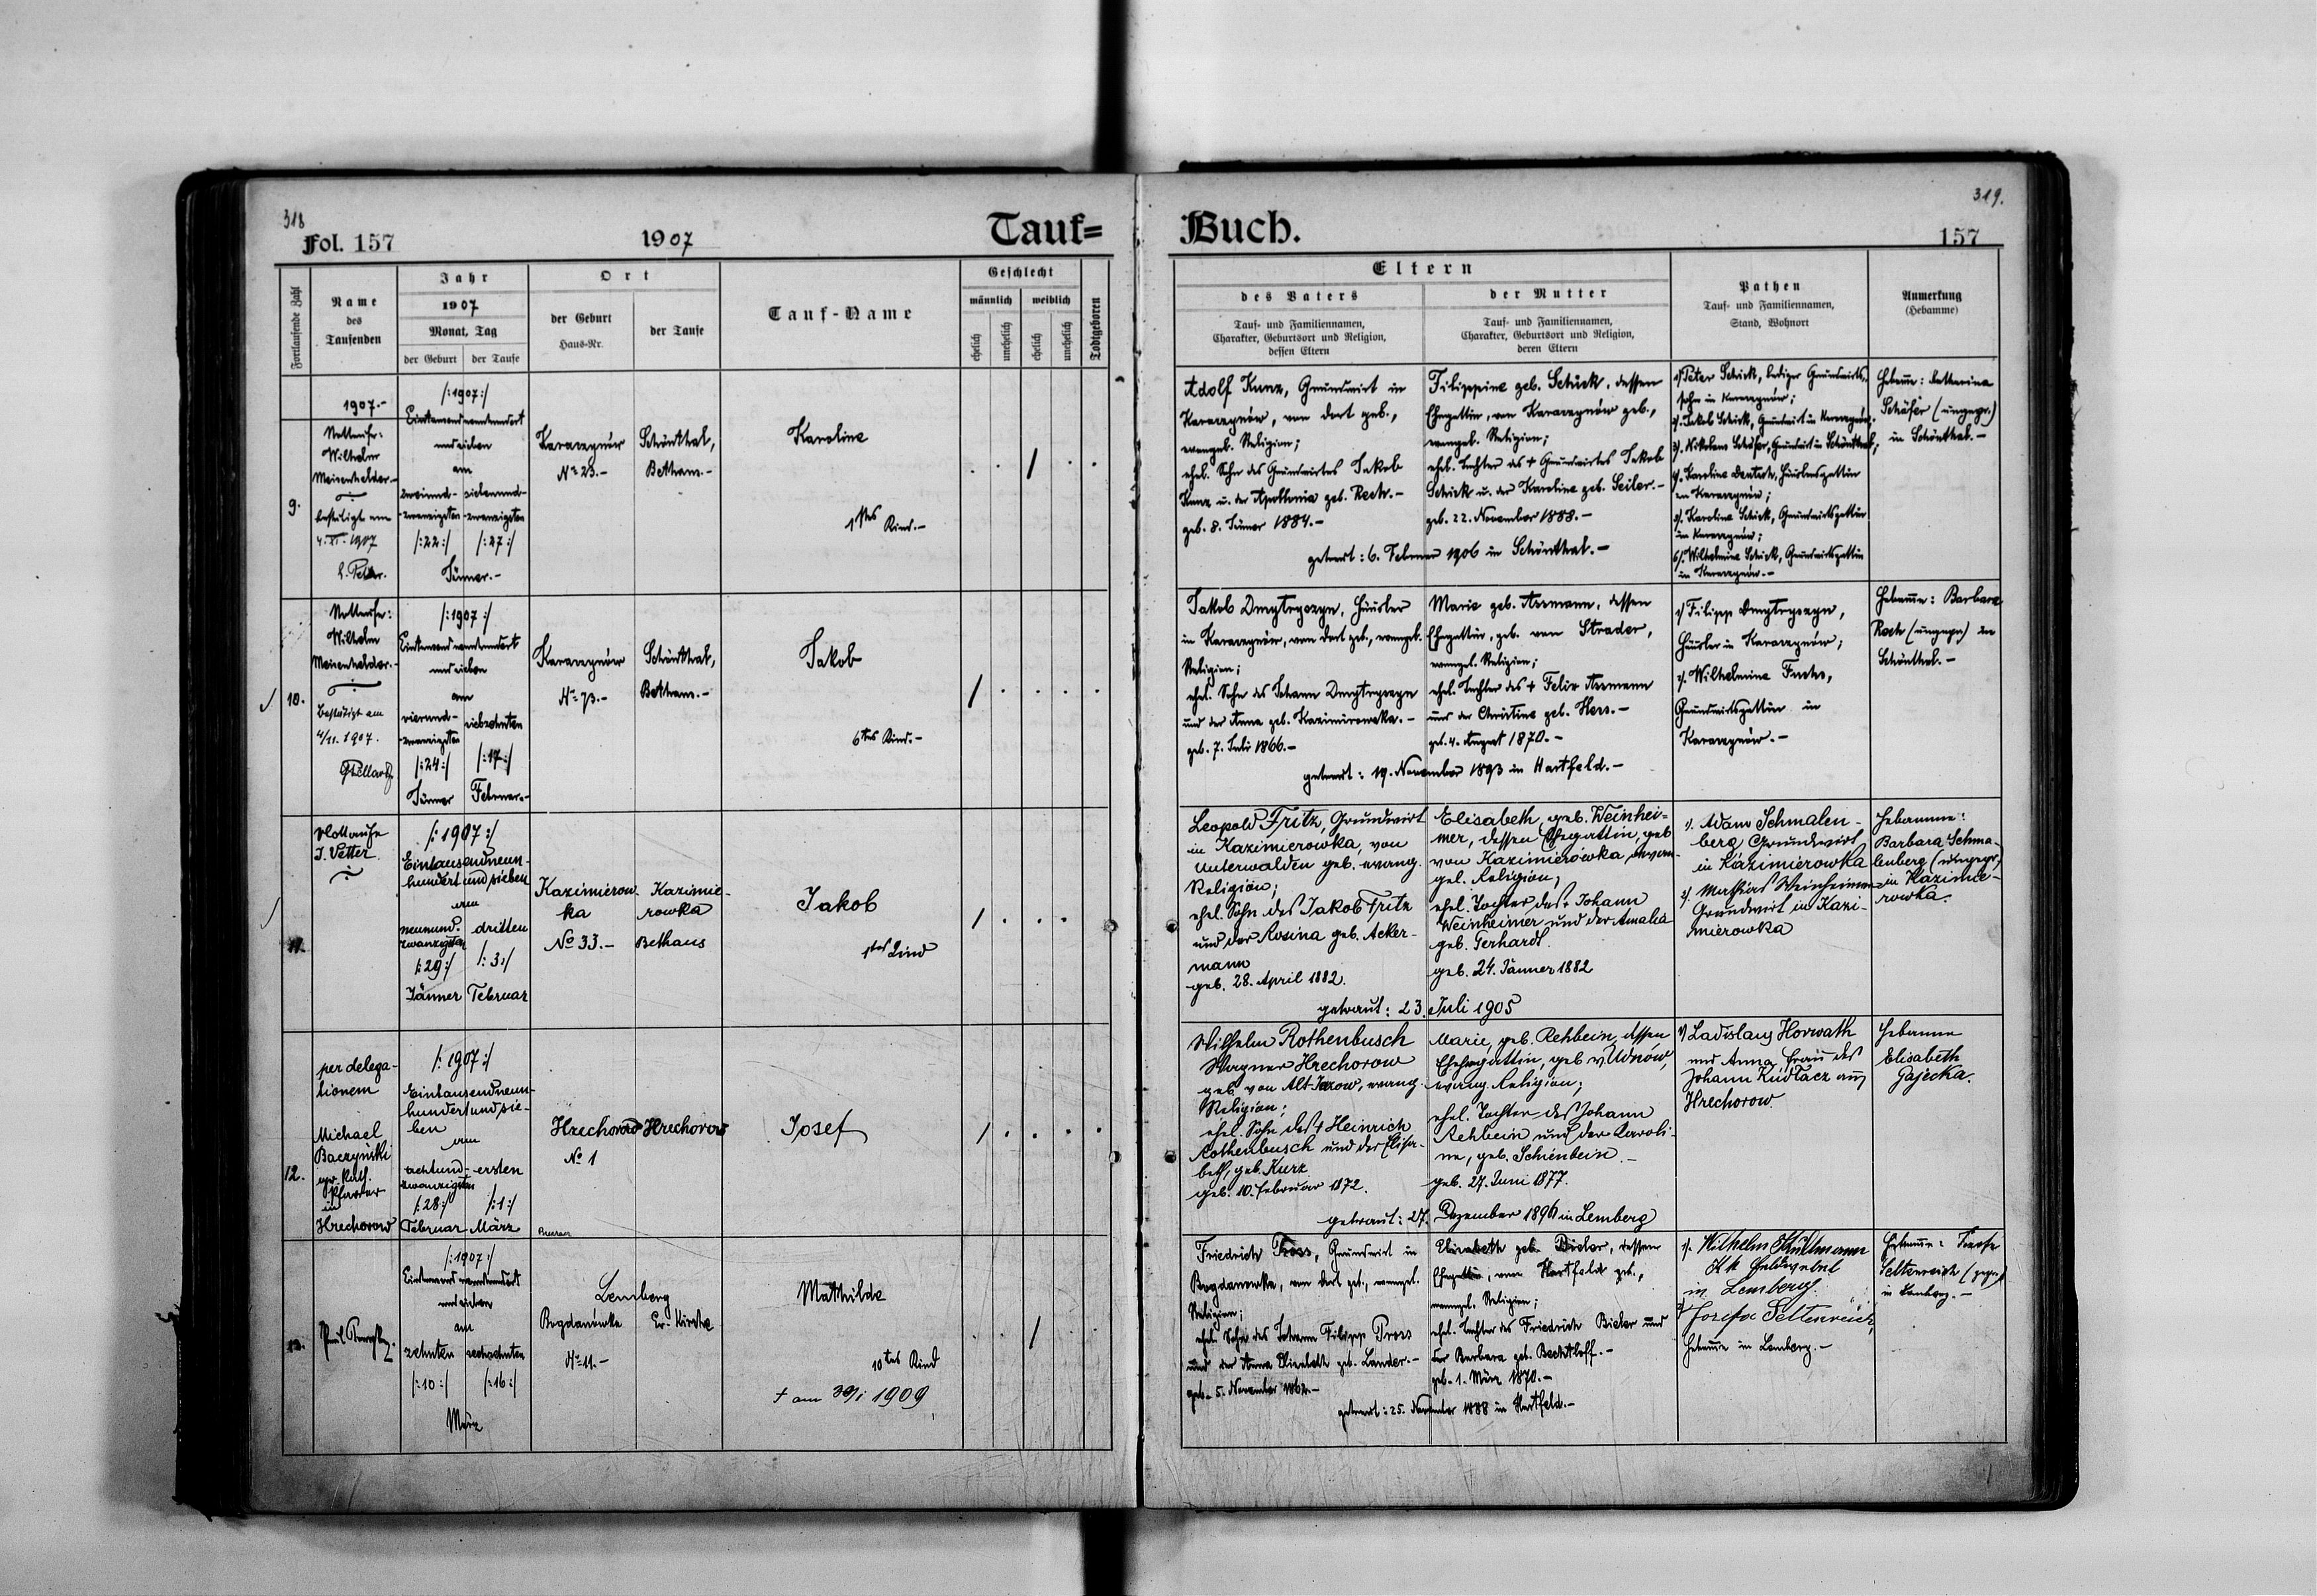 318
Fol. 157
1907
Tauf=
Fortlaufende Zahl
Name
des
Taufenden
Jahr
1907
Monat, Tag
der Geburt
der Taufe
Ort
der Geburt
Haus-Nr.
der Taufe
Tauf-Name
Geschlecht
männlich
weiblich
ehelich
unehelich
ehelich
unehelich
Todtgeboren
1907.-
9.
Nottaufe:
Wilhelm
Meisenhelder.-
bestätigt am
4. II. 1907
/:1907:/
Eintausendneunhundert
und sieben
am
zweiund-
zwanzigsten
/:22:/
siebenund-
zwanzigsten
/:27:/
Jänner.-
Nº 23.-
Schönthal,
Bethaus.-
Karoline
1tes Kind.-
10.
Nottaufe:
Wilhelm
Meisenhelder.-
bestätigt am
4/II. 1907.
/:1907:/
Eintausendneunhundert
und sieben
am
vierund-
zwanzigsten
/:24:/
Jänner
siebzehnten
/:17:/
Februar.-
Nº 73.-
Schönthal,
Bethaus.-
Jakob
6tes Kind.-
11.
Nottaufe
J. Vetter
/:1907:/
Eintausendneun-
hundert und sieben
am
neunund-
zwanzigsten
/:29:/
Jänner
dritten
/:3:/
Februar
Kazimierow-
ka
No 33.-
Kazimie-
rowka
Bethaus
Jakob
1tes Kind
12.
per delega-
tionem
Michael
Baczyński
Pfarrer
in
Hrechorow
/:1907:/
Eintausendneun-
hundert und sie-
ben
am
achtund-
zwanzigsten
/:28:/
Februar
ersten
/:1:/
März
Hrechorow
No 1
Hrechorow
Josef
13.
/:1907:/
Eintausendneunhundert
und sieben
am
zehnten
/:10:/
sechzehnten
/:16:/
März
Lemberg
Bogdanówka
Nº 11.-
Ev. Kirche
Mathilde
10tes Kind
† am 30/I 1909
319.
Buch.
157
Eltern
des Vaters
Tauf- und Familiennamen,
Charakter, Geburtsort und Religion,
dessen Eltern
der Mutter
Tauf- und Familiennamen,
Charakter, Geburtsort und Religion,
deren Eltern
Pathen
Tauf- und Familiennamen,
Stand, Wohnort
Anmerkung
(Hebamme)
Adolf Kunz, Grundwirt in
von dort geb.,
evangel. Religion;
ehel. Sohn des Grundwirtes Jakob
Kunz u. der Apollonia geb. Rech.-
geb. 8. Jänner 1884.-
Filippine geb. Schick, dessen
Ehegattin, von geb.,
evangel. Religion;
ehel. Tochter des † Grundwirtes Jakob
Schick u. der Karoline geb. Seiler.-
geb. 22. November 1888.-
getraut: 6. Februar 1906 in Schönthal.-
1/. Peter Schick, lediger Grundwirts-
sohn in
2/. Jakob Schick, Grundwirt in
3/. Nikolaus Schäfer, Grundwirt in Schönthal;
4/. Karoline
in
5/. Karoline Schick, Grundwirtsgattin
in
6/. Wilhelmine Schick, Grundwirtsgattin
in
Hebamme: Katharina
Schäfer (ungepr.)
in Schönthal.-
Jakob Dmytryszyn, Häusler
in von dort geb., evangel.
Religion;
ehel. Sohn des Johann Dmytryszyn
und der Anna geb. Kazimirowska.-
geb. 7. Juli 1866.-
Marie geb. Assmann, dessen
Ehegattin, geb. von Strader,
evangel. Religion;
ehel. Tochter des † Felix Assmann
und der Christine geb. Hers.-
geb. 4. August 1870.-
getraut: 19. November 1893 in Hartfeld.-
1/ Filipp Dmytryszyn,
Häusler in
2/. Wilhelmine Fuchs,
Grundwirtsgattin in
Hebamme: Barbara
(ungepr.) in
Schönthal.-
Leopold Fritz, Grundwirt
in Kazimierowka, von
Unterwalden geb. evang.
Religion;
ehel. Sohn des Jakob Fritz
und der Rosina geb. Acker-
mann
geb. 28. April 1882.
Elisabeth, geb. Weinhei-
mer, dessen Ehegattin, geb
von Kazimierówka, evan-
gel. Religion;
ehel. Tochter des Johann
Weinheimer und der Amalia
geb. Gerhardt.
geb. 24. Jänner 1882
getraut: 23. Juli 1905
1/. Adam Schmalen-
berg Grundwirt
in Kazimierowka
2/. Mathias Weinheimer
Grundwirt in Kazi-
mierowka
Hebamme:
Barbara Schma-
lenberg (ungepr.)
in Kazimie-
rowka.
Wilhelm Rothenbusch
Wagner Hrechorow
geb von Alt-Jazow, evang.
Religion;
ehel. Sohn des † Heinrich
Rothenbusch und der Elisa-
beth, geb. Kurz
geb. 10. Februar 1872.
Marie, geb. Rehbein, dessen
Ehegattin, geb v. Uhnów,
evang. Religion;
ehel. Tochter des Johann
Rehbein und der Karoli-
ne, geb. Schienbein.-
geb. 27. Juni 1877.
getraut: 27. Dezember 1896 in Lemberg
1/ Ladislaus Horwath
und Anna, Frau des
Johann Kudłacz aus
Hrechorow.
Hebamme
Elisabeth
Gajecka.
Friedrich Pross, Grundwirt in
Bogdanowka, von dort geb., evangel.
Religion;
ehel. Sohn des Johann Filipp Pross
und der Anna Elisabeth geb. Lander.-
geb. 5. November 1862.-
Elisabeth geb. Bieler, dessen
Ehegattin, von Hartfeld geb.,
evangel. Religion;
ehel. Tochter des Friedrich Bieler und
der Barbara geb. Bechtloff.-
geb. 1. März 1870.-
getraut: 25. November 1888 in Hartfeld.-
1/. Wilhelm
Kk Feldwebel
in Lemberg.
2/ Josefa Seltenreich,
Hebamme in Lemberg.-
Hebamme: Josefa
Seltenreich (gepr.)
in Lemberg.-